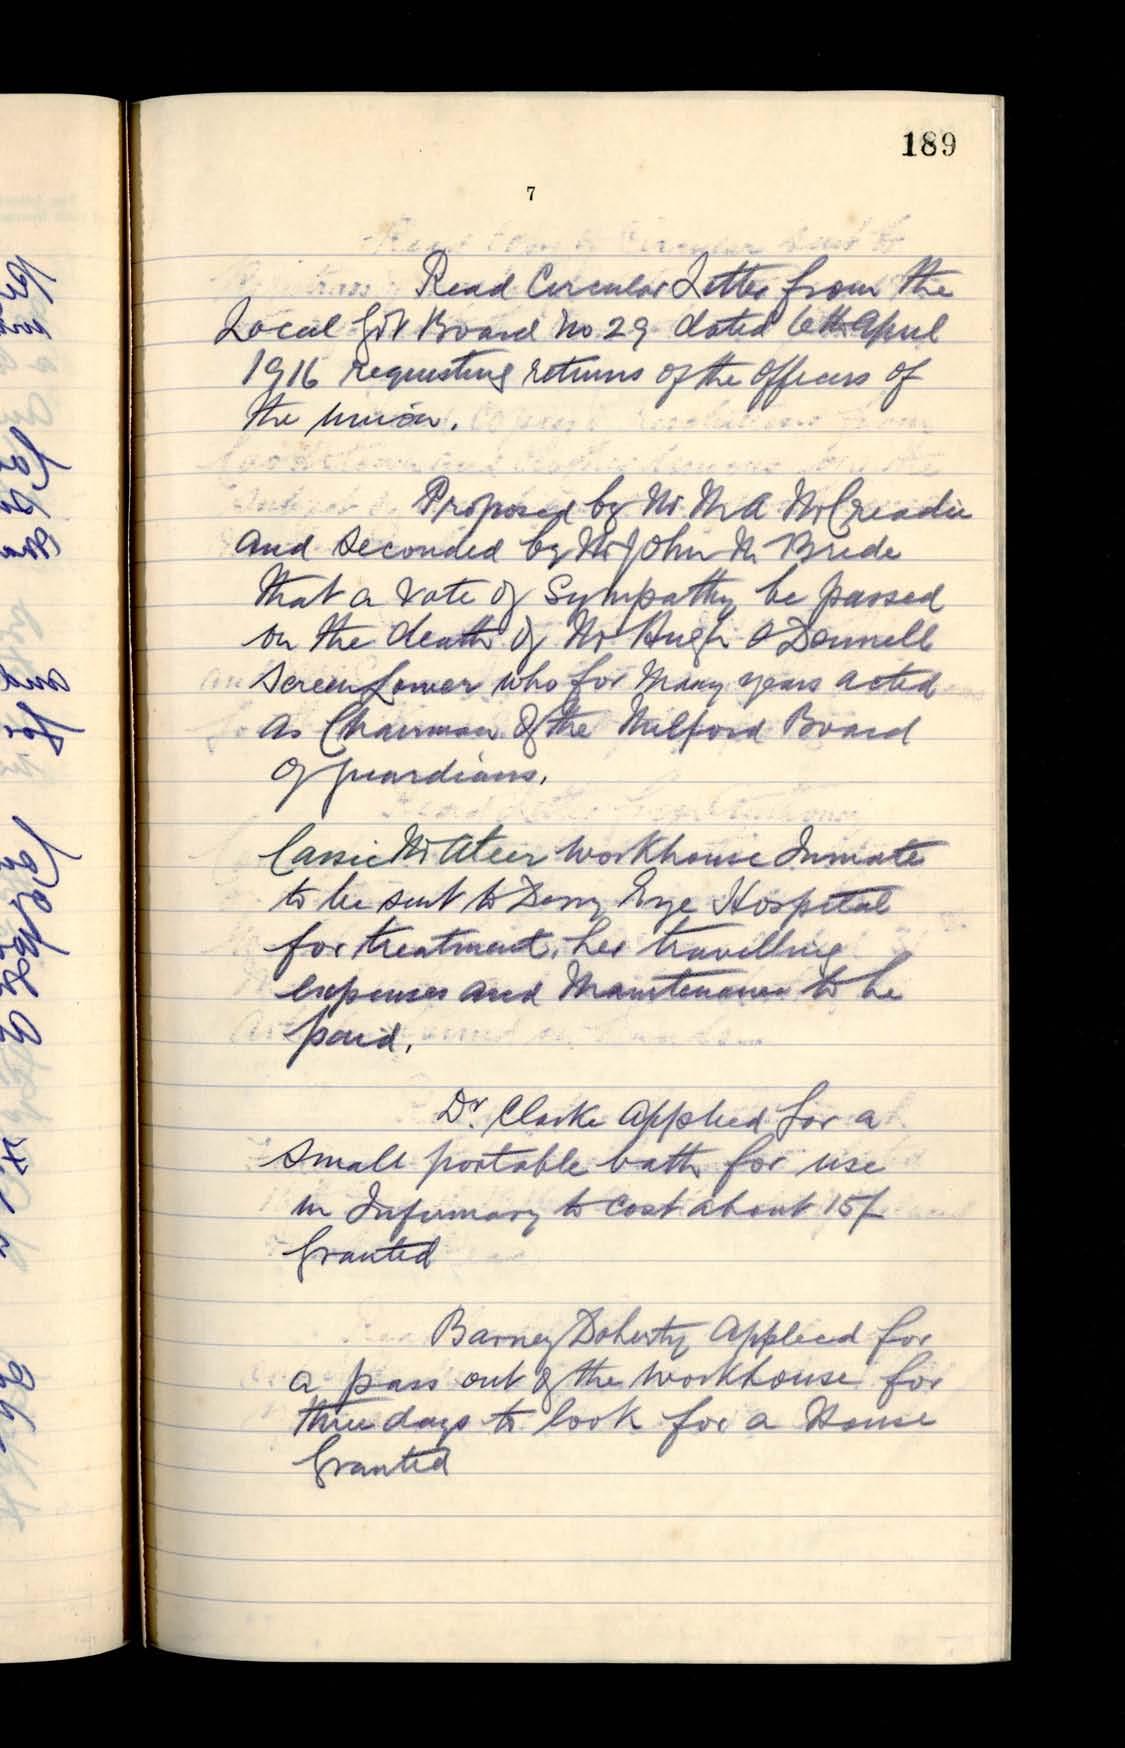 189
7
Read Circular Letter from the
Local Gvt Board No 29 dated 6th April
1916 requesting returns of the officers of
the union.
Proposed by Mr M A McCreadie
and seconded by Mr John Mc Bride
that a vote of Sympathy be passed
on the death of Mr Hugh O Donnell
who for many years acted
as Chairman of the Milford Board
of guardians.
Cassie McAteer Workhouse Inmate
to be sent to Derry Eye Hospital
for treatment, her travelling
expenses and Maintenance to be
paid.
Dr. Clarke applied for a
small portable bath for use
in Infirmary to cost about 15/-
Granted
Barney Doherty applied for
a pass out of the workhouse for
three days to look for a House
Granted